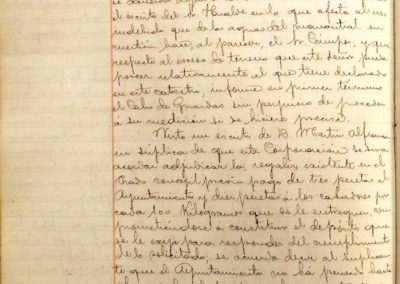 el escrito del Sr. Hualde en lo que afecta al uso
indebido que de las aguas del manantial en
cuestión hace, al parecer, el Sr. Campo, y que
respecto al exceso de terreno que este Señor pueda
poseer relativamente al que tiene declarado
en este catastro, informe en primer término
el Cabo de Guardas sin perjuicio de proceder
á su medición si se hiciere precisa.
Visto un escrito de D. Martín
en súplica de que esta Corporación se sirva
acordar adjudicarle regaliz existente en el
previo pago de tres pesetas al
Ayuntamiento y diez pesetas á los cavadores por
cada 100 Kilogramos que se le entreguen, com
prometiéndose á constituir el depósito que
se le exija para responder del cumplimiento
de lo solicitado, se acuerda decir al suplican
te que el Ayuntamiento no há pensado hasta